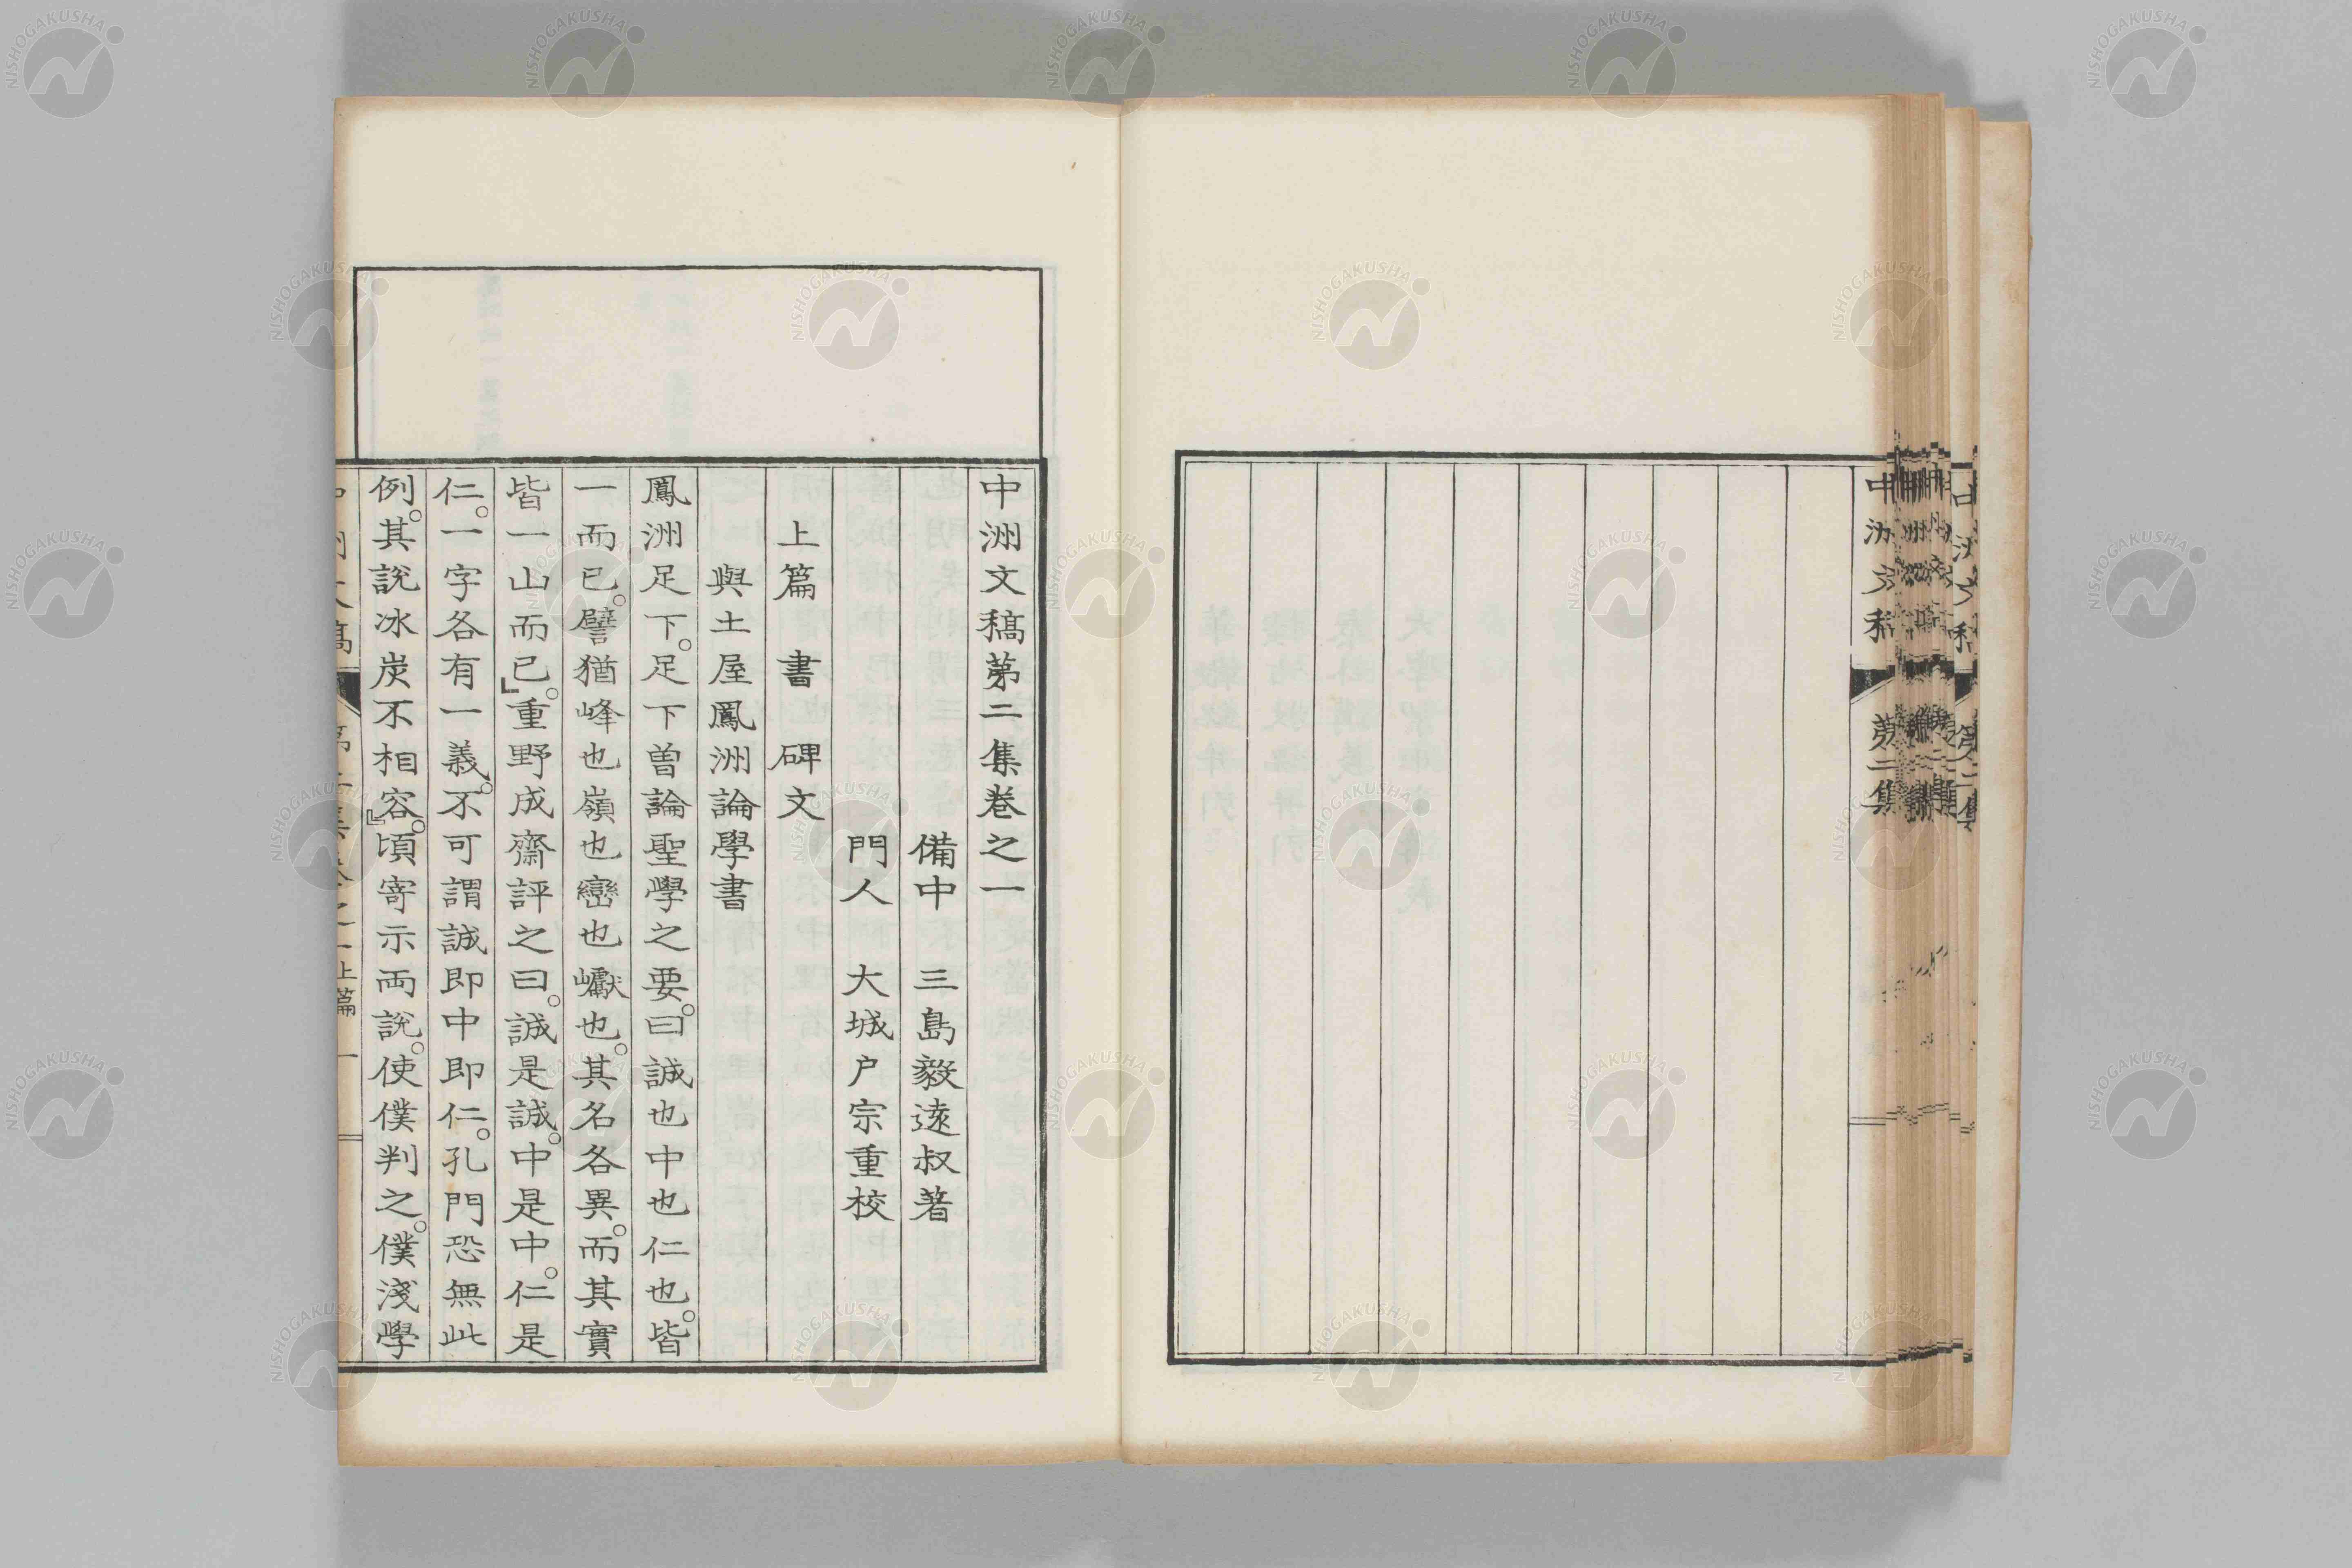 中洲文稿第二集卷之一
備中　三島毅遠叔著
門人　大城戶宗重校
上篇　書　碑文
與土屋鳳洲論學書
鳳洲足下。足下曽論聖學之要。曰誠也中也仁也。皆
一而已。譬猶峰也嶺也巒也巘也。其名各異。而其實
皆一山而已。』重野成齋評之曰。誠是誠。中是中。仁是
仁。一字各有一義。不可謂誠即中即仁。孔門恐無此
例。其說冰炭不相容。』頃寄示両說。使僕判之。僕淺學